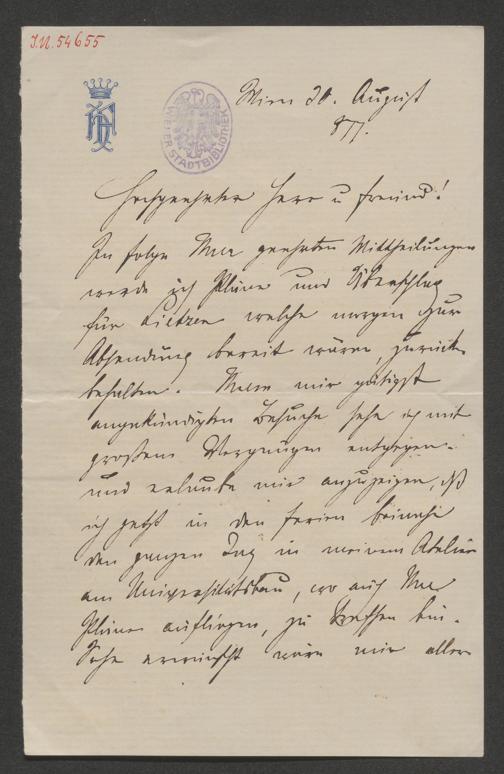 J.N. 54655
WIENER STADTBIBLIOTHEK
Wien 20. August
877.
Hochgeehrter Herr u Freund!
In folge Ihrer geehrten Mittheilungen
werde ich Pläne und Überschlag
für welche morgen zur
Absendung bereit wären, zurück
behalten. Ihrem mir gütigst
angekündigten Besuche sehe ich mit
großem Vergnügen entgegen
und erlaube mir anzuzeigen, dß
ich jetzt in den Ferien beinahe
den ganzen Tag in meinem Atelier
am Universitätsbau, wo auch Ihre
Pläne aufliegen, zu treffen bin.
Sehr erwünscht wäre mir aller